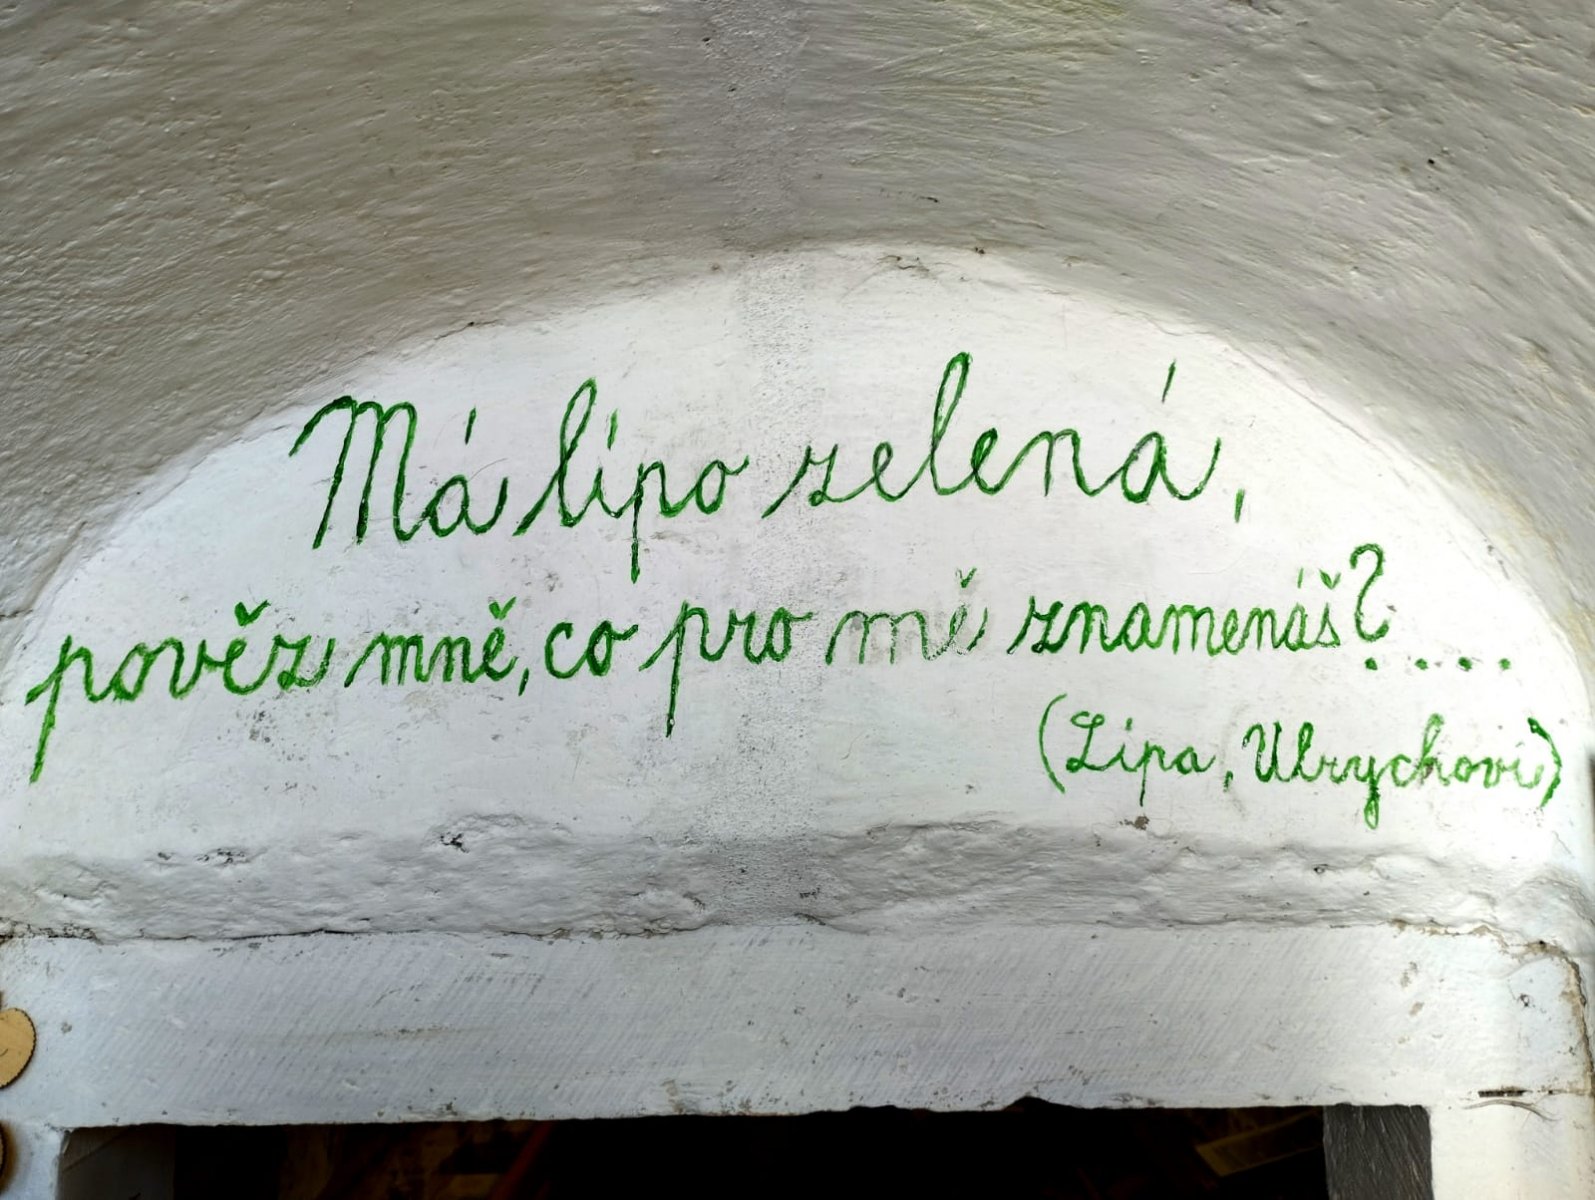 Má lípo zelená,
pověz mně, co pro mě znamenáš?....
(Lípa, Ulrychovi)